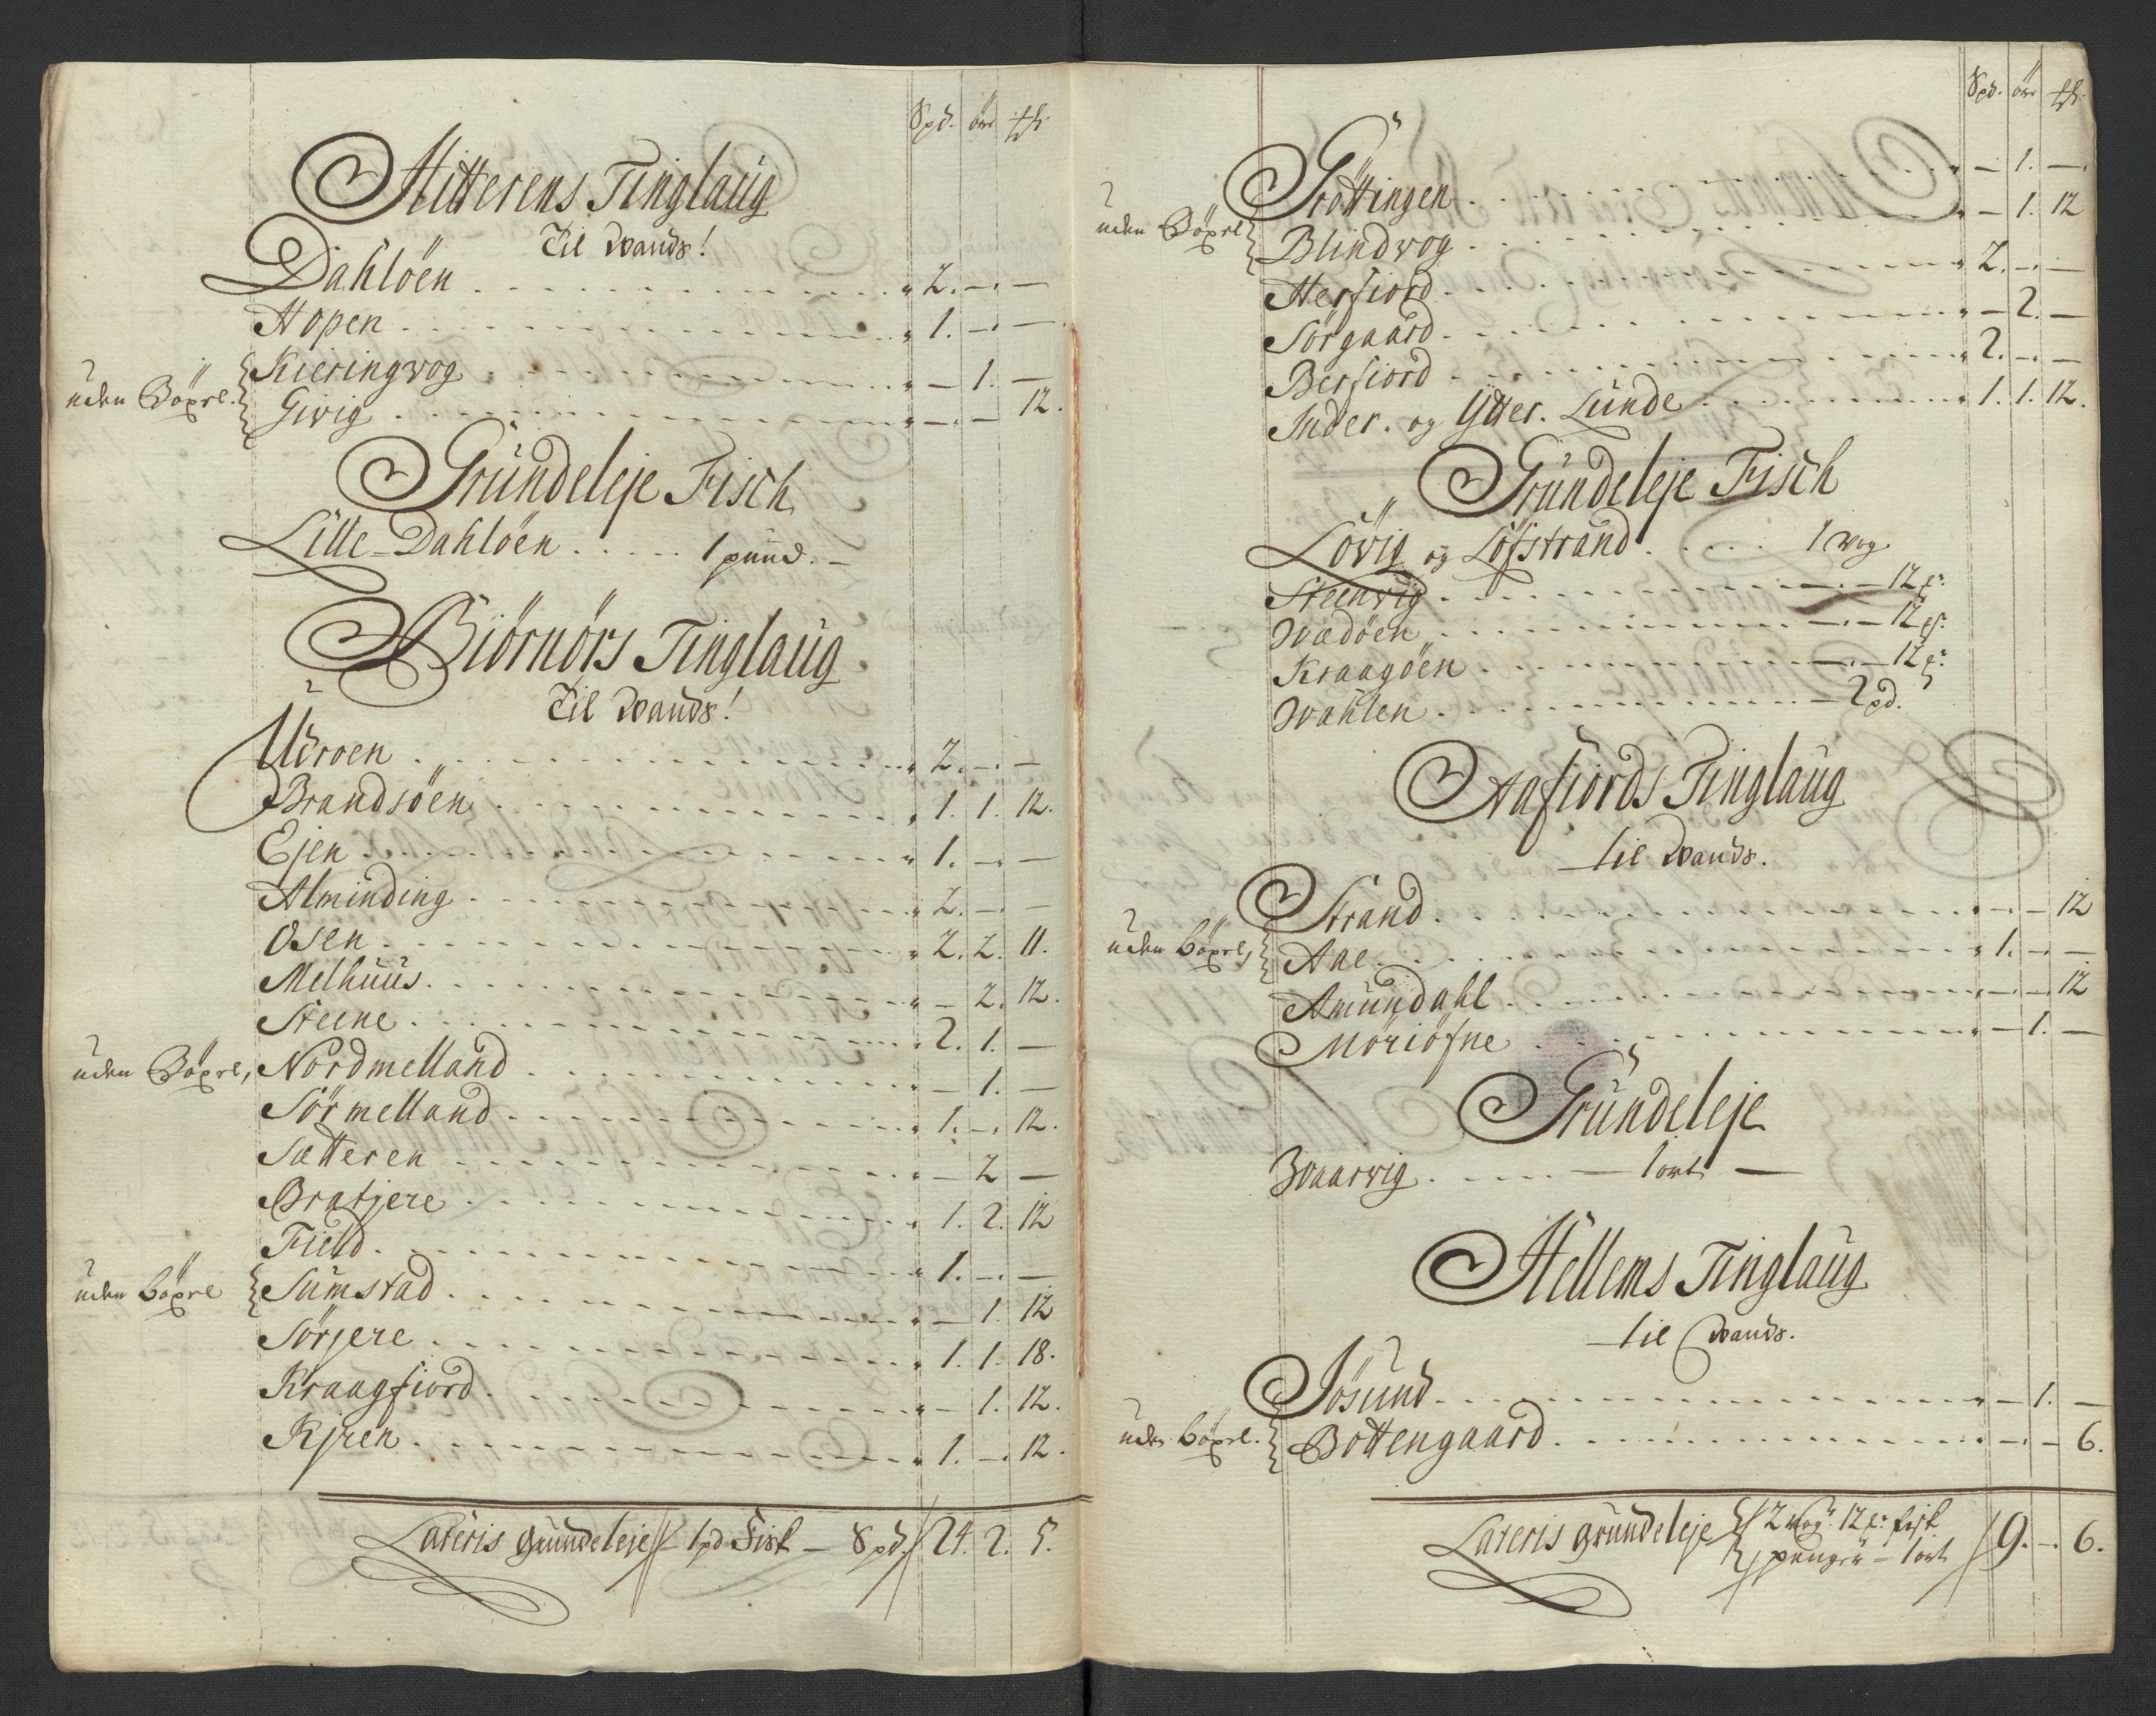 Spd. öre ℔
Hitterens Tinglaug
Til Wands!
Dahlöen . . . . 2. — —
Hopen . . . . 1. — —
Kieringvog . . . . — 1. —
uden Böxel. Givig . . . . — — 12.
Grundeleje Fisch
Lille-Dahlöen . . . . 1 pund. —
Biörnörs Tinglaug
Til Wands!
Udroen . . . . 2. — —
Brandsöen . . . . 1. 1. 12.
Ejen . . . . 1. — —
Alminding . . . . 2. — —
Osen . . . . 2. 2. 11.
Melhuus . . . . — 2. 12.
Steene . . . . 2. 1. —
uden Böxel, Nordmelland . . . . — 1. —
Sörmelland . . . . 1. — 12.
Sætteren . . . . — 2 —
Bratjere . . . . 1. 2. 12
Field . . . . 1. — —
uden böxel Sumstad . . . . — 1. 12
Sörjere . . . . 1. 1. 18.
Kraagfiord . . . . — 1. 12.
Kjren . . . . 1. — 12.
Lateris Grundeleje 1 pd Fisk — Spd. 24. 2. 5.
Spd. öre ℔
Gröttingen . . . . — 1. —
uden Böxel Blindvog . . . . — 1. 12
Herfiord . . . . 2. — —
Sörgaard . . . . — 2. —
Berfiord . . . . 2. — —
Inder. og Ytter. Lunde . . . . 1. 1. 12.
Grundeleje Fisch
Lövig og Löfstrand . . . . 1 wog
Steenvig . . . . — 12 
Wædöen . . . . — 12 
Kraagöen . . . . — 12 
Wahlen . . . . — 2 pd.
Aafiords Tinglaug
til Wands.
Strand . . . . — — 12
uden böxel, Aae . . . . 1. — —
Amundahl . . . . — — 12
Möriöfne . . . . — 1. —
Grundeleje
Waarvig . . . . — 1 ort —
Hellems Tinglaug
til Wands.
Jösund . . . . — 1. —
uden böxel. Bottengaard . . . . — — 6.
Lateris Grundeleje 2 wog: 12 fisk 9. — 6.
penger — 1 ort